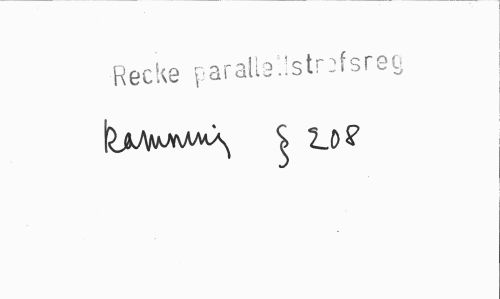 Recke parallellstrofsreg
kamning § 208